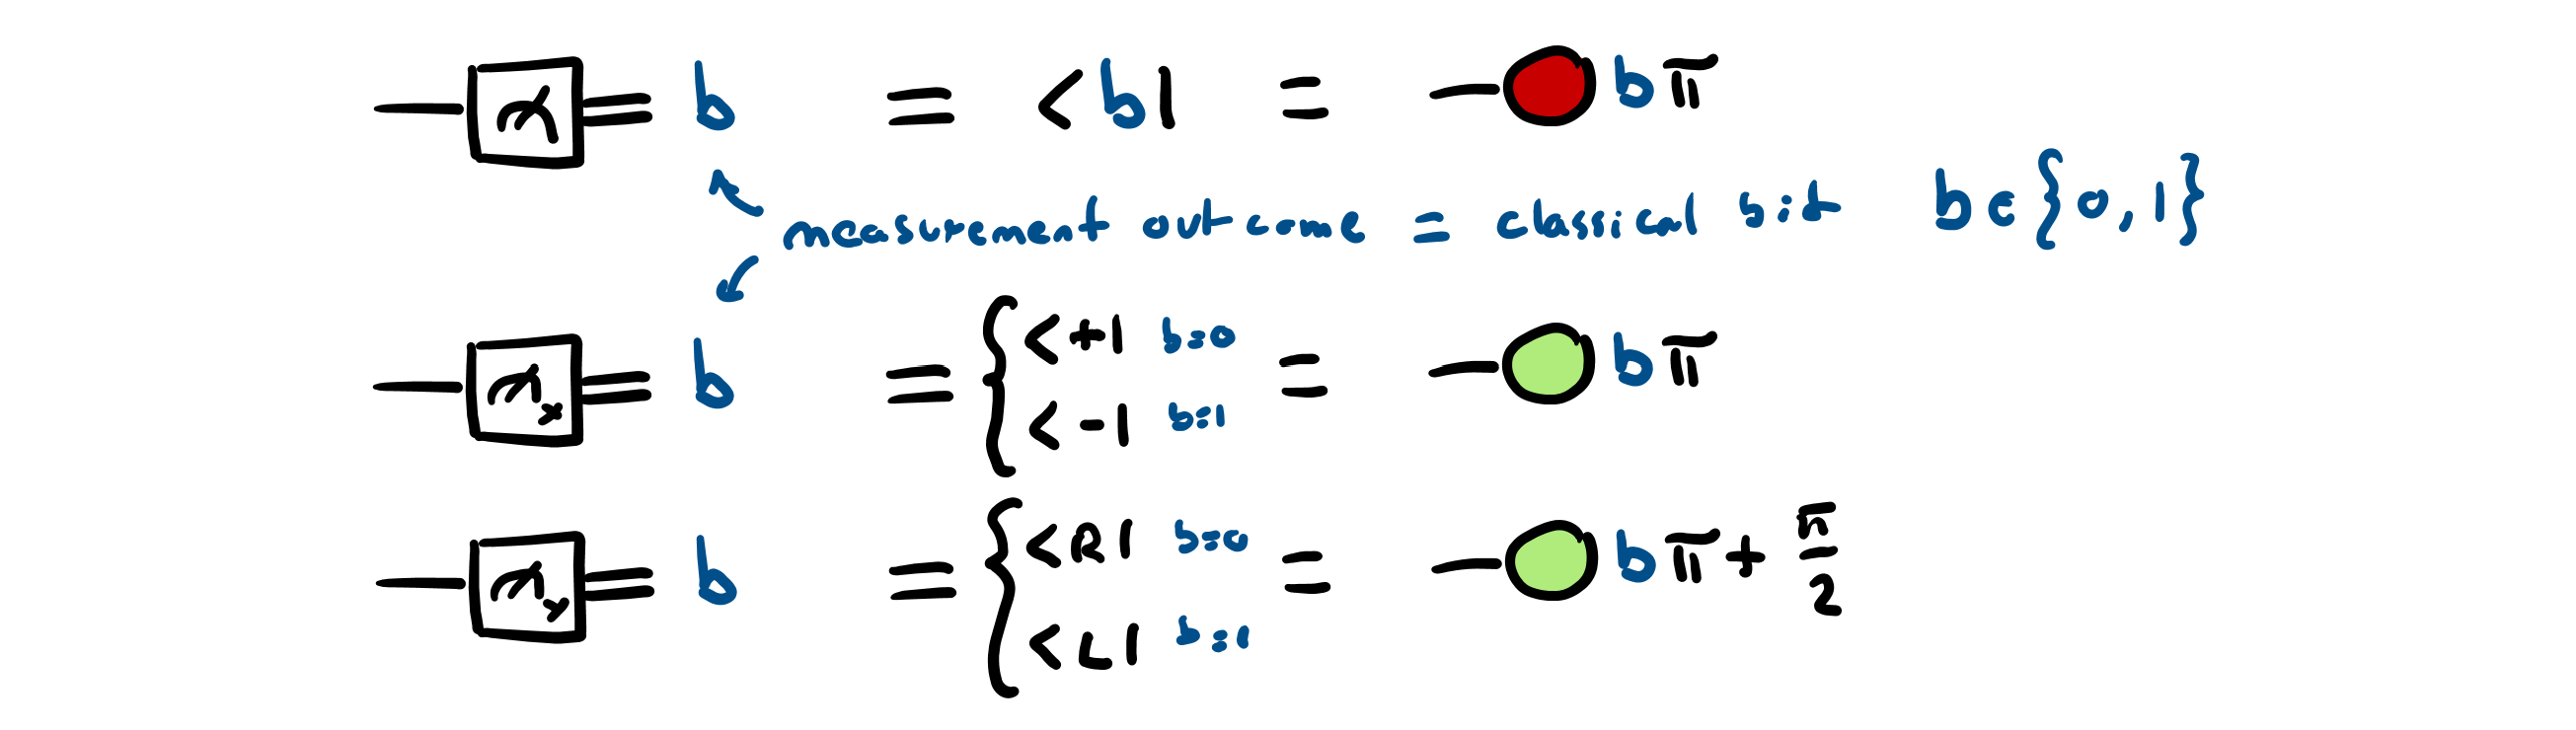 b ≡ <b| = bπ
measurement outcome = classical bit b∈{0,1}
x b ≡ { <+| b=0 = bπ
<-| b=1
y b ≡ { <R| b=0 = bπ + π/2
<L| b=1